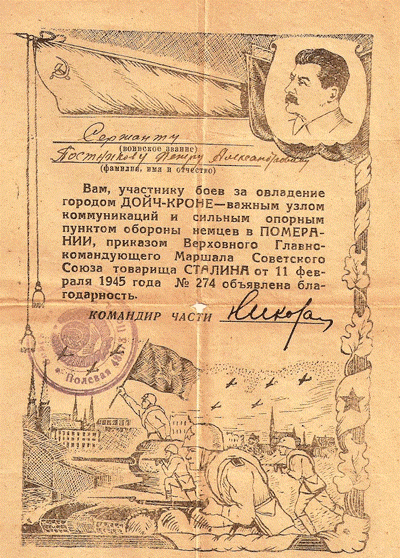 Сержанту
(воинское звание)
Постникову Петру Александровичу
(фамилия, имя и отчество)
Вам, участнику боев за овладение
городом ДОЙЧ-КРОНЕ—важным узлом
коммуникаций и сильным опорным
пунктом обороны немцев в ПОМЕРА-
НИИ, приказом Верховного Главно-
командующего Маршала Советского
Союза товарища СТАЛИНА от 11 фев-
раля 1945 года № 274 объявлена бла-
годарность.
КОМАНДИР ЧАСТИ
Полевая